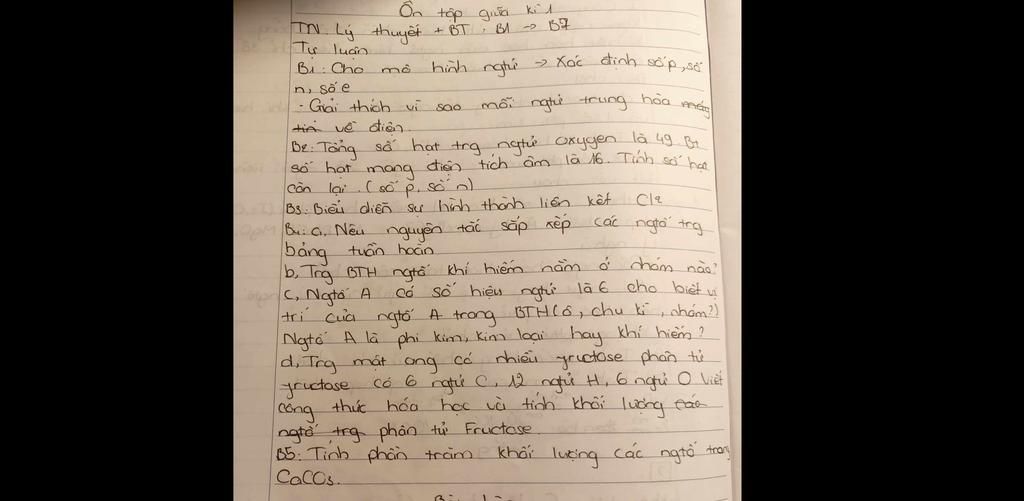 Ôn tập giữa kì 1
TN: Lý thuyết + BT : B1 → B7
Tự luận
B1: Cho mô hình ngtử → Xác định số p, số
n, số e
- Giải thích vì sao mỗi ngtử trung hòa
về điện.
B2: Tổng số hạt trg ngtử oxygen là 49 Bt
số hạt mang điện tích âm là 16. Tính số hạt
còn lại. (số p, số n)
B3: Biểu diễn sự hình thành liên kết Cl2
B4: a, Nêu nguyên tắc sắp xếp các ngtố trg
bảng tuần hoàn
b, Trg BTH ngtố khí hiếm nằm ở nhóm nào?
c, Ngtố A có số hiệu ngtử là 6 cho biết vị
trí của ngtố A trong BTH (ô, chu kì, nhóm?)
Ngtố A là phi kim, kim loại hay khí hiếm?
d, Trg mật ong có nhiều fructose phân tử
fructose có 6 ngtử C, 12 ngtử H, 6 ngtử O Viết
công thức hóa học và tính khối lượng các
ngtố trg phân tử Fructose.
B5: Tính phần trăm khối lượng các ngtố trong
CaCO3.